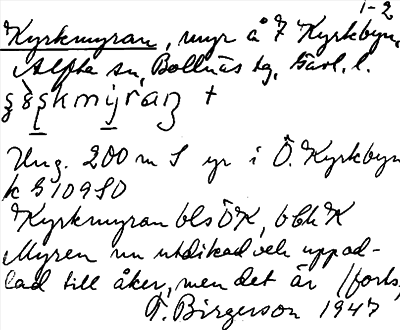 1-2
Kyrkmyran, myr å 7 Kyrkbyn,
Alfta sn, Bollnäs tg, Gävl. l.
+
Ung. 200 m S yr i Ö. Kyrkbyn
k G 109 SO
Kyrkmyran bls ÖK, bbh K
Myren nu utdikad och uppod-
lad till åker, men det är /forts.
T. Birgerson 1947